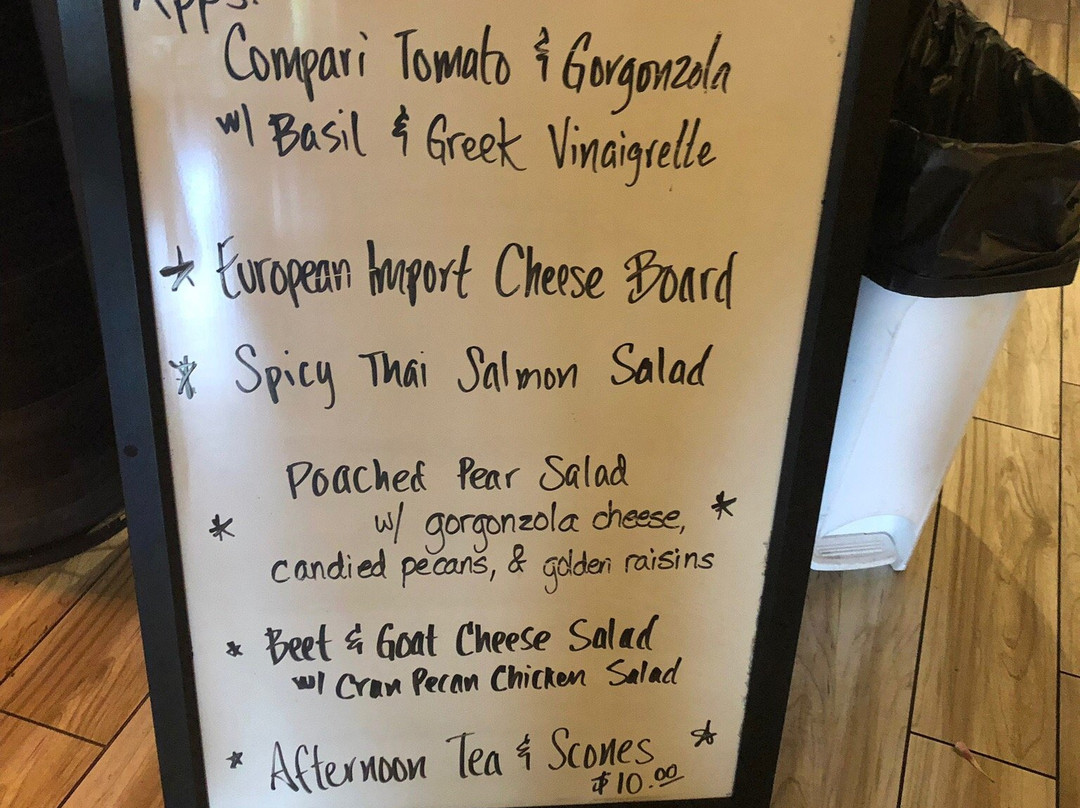 Apps:
Compari Tomato & Gorgonzola
w/ Basil & Greek Vinaigrette
* European Import Cheese Board
* Spicy Thai Salmon Salad
Poached Pear Salad
* w/ gorgonzola cheese, *
candied pecans, & golden raisins
* Beet & Goat Cheese Salad
w/ Cran Pecan Chicken Salad
* Afternoon Tea & Scones *
$10.00